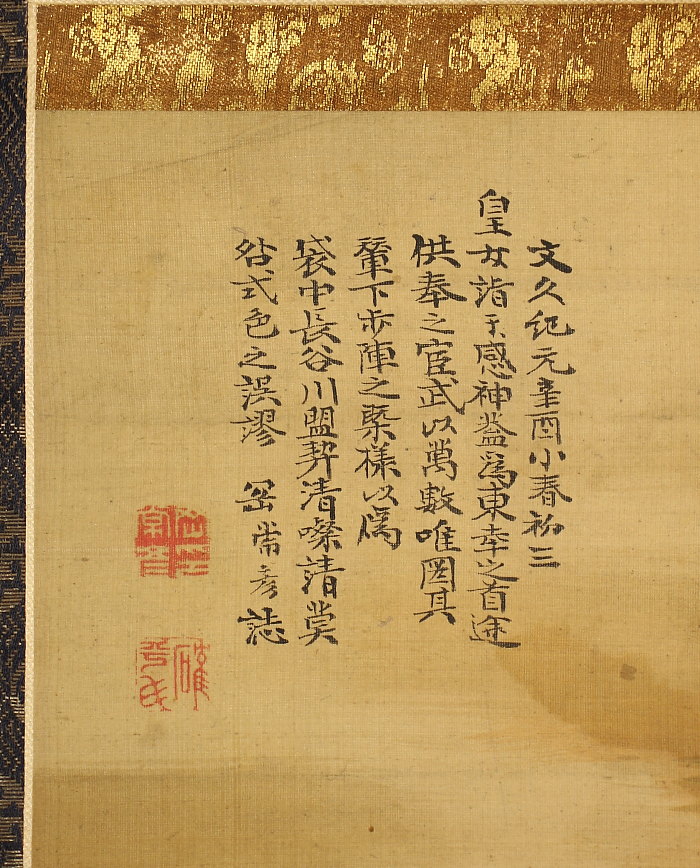 文久紀元辛酉小春初三
皇女詣于感神蓋為東幸之首途
供奉之宦武以萬數唯図具
輦下歩陣之槩様以為
袋中長谷川盟契清嗓請莫
咎式色之誤謬 岳常彦誌